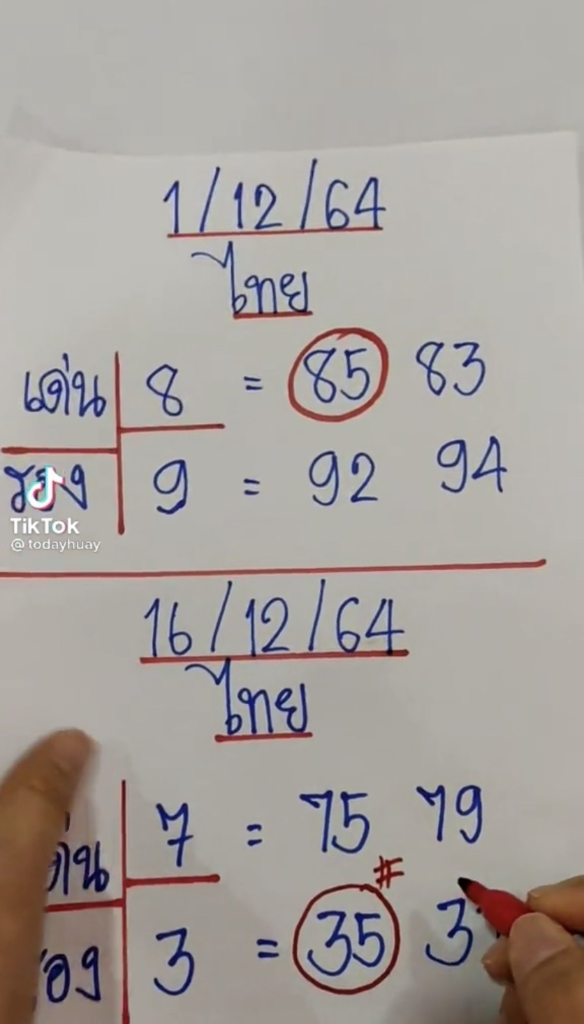 1/12/64
ไทย
เด่น 8 = 85 83
รอง 9 = 92 94
TikTok
@todayhuay
16/12/64
ไทย
7 = 75 79
#
3 = 35